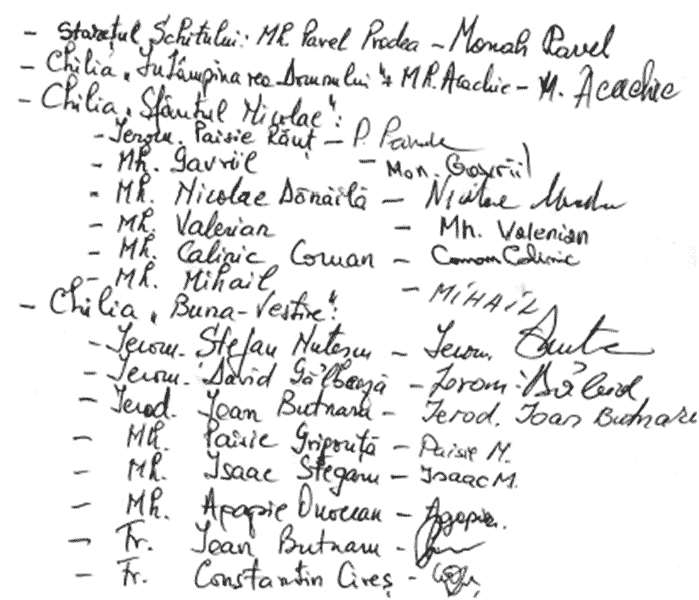 - Starețul Schitului: Mh. Pavel Prodea - Monah Pavel
- Chilia „Întâmpinarea Domnului": Mh. Acachie - M. Acachie
- Chilia „Sfântul Nicolae":
- Ierom. Paisie Răuț - P.
- Mh. Gavriil - Mon. Gavriil
- Mh. Nicolae Dănăilă - Nicolae
- Mh. Valerian - Mh. Valerian
- Mh. Calinic Coman - Coman Calinic
- Mh. Mihail - MIHAIL
- Chilia „Buna-Vestire":
- Ierom. Ștefan Nuțescu - Ierom.
- Ierom. David - Ierom.
- Ierod. Ioan Butnaru - Ierod. Ioan Butnaru
- Mh. Paisie - Paisie M.
- Mh. Isaac - Isaac M.
- Mh. Agapie - Agapie
- Fr. Ioan Butnaru -
- Fr. Constantin Cireș -